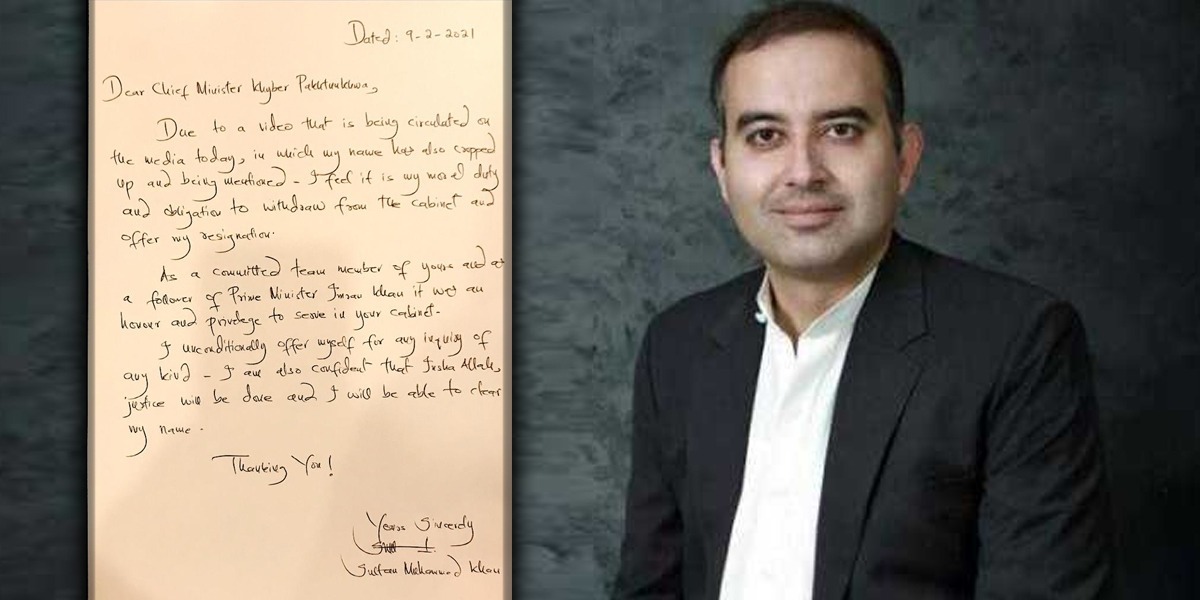 Dated: 9-2-2021
Dear Chief Minister Khyber Pakhtunkhwa,
Due to a video that is being circulated on
the media today, in which my name has also cropped
up and being mentioned - I feel it is my moral duty
and obligation to withdraw from the cabinet and
offer my resignation.
As a committed team member of yours and as
a follower of Prime Minister Imran Khan it was an
honour and privelege to serve in your cabinet-
I unconditionally offer myself for any inquiry of
any kind - I am also confident that Insha Allah,
justice will be done and I will be able to clear
my name.
Thanking You!
Yours Sincerely
Sultan Mohammad Khan